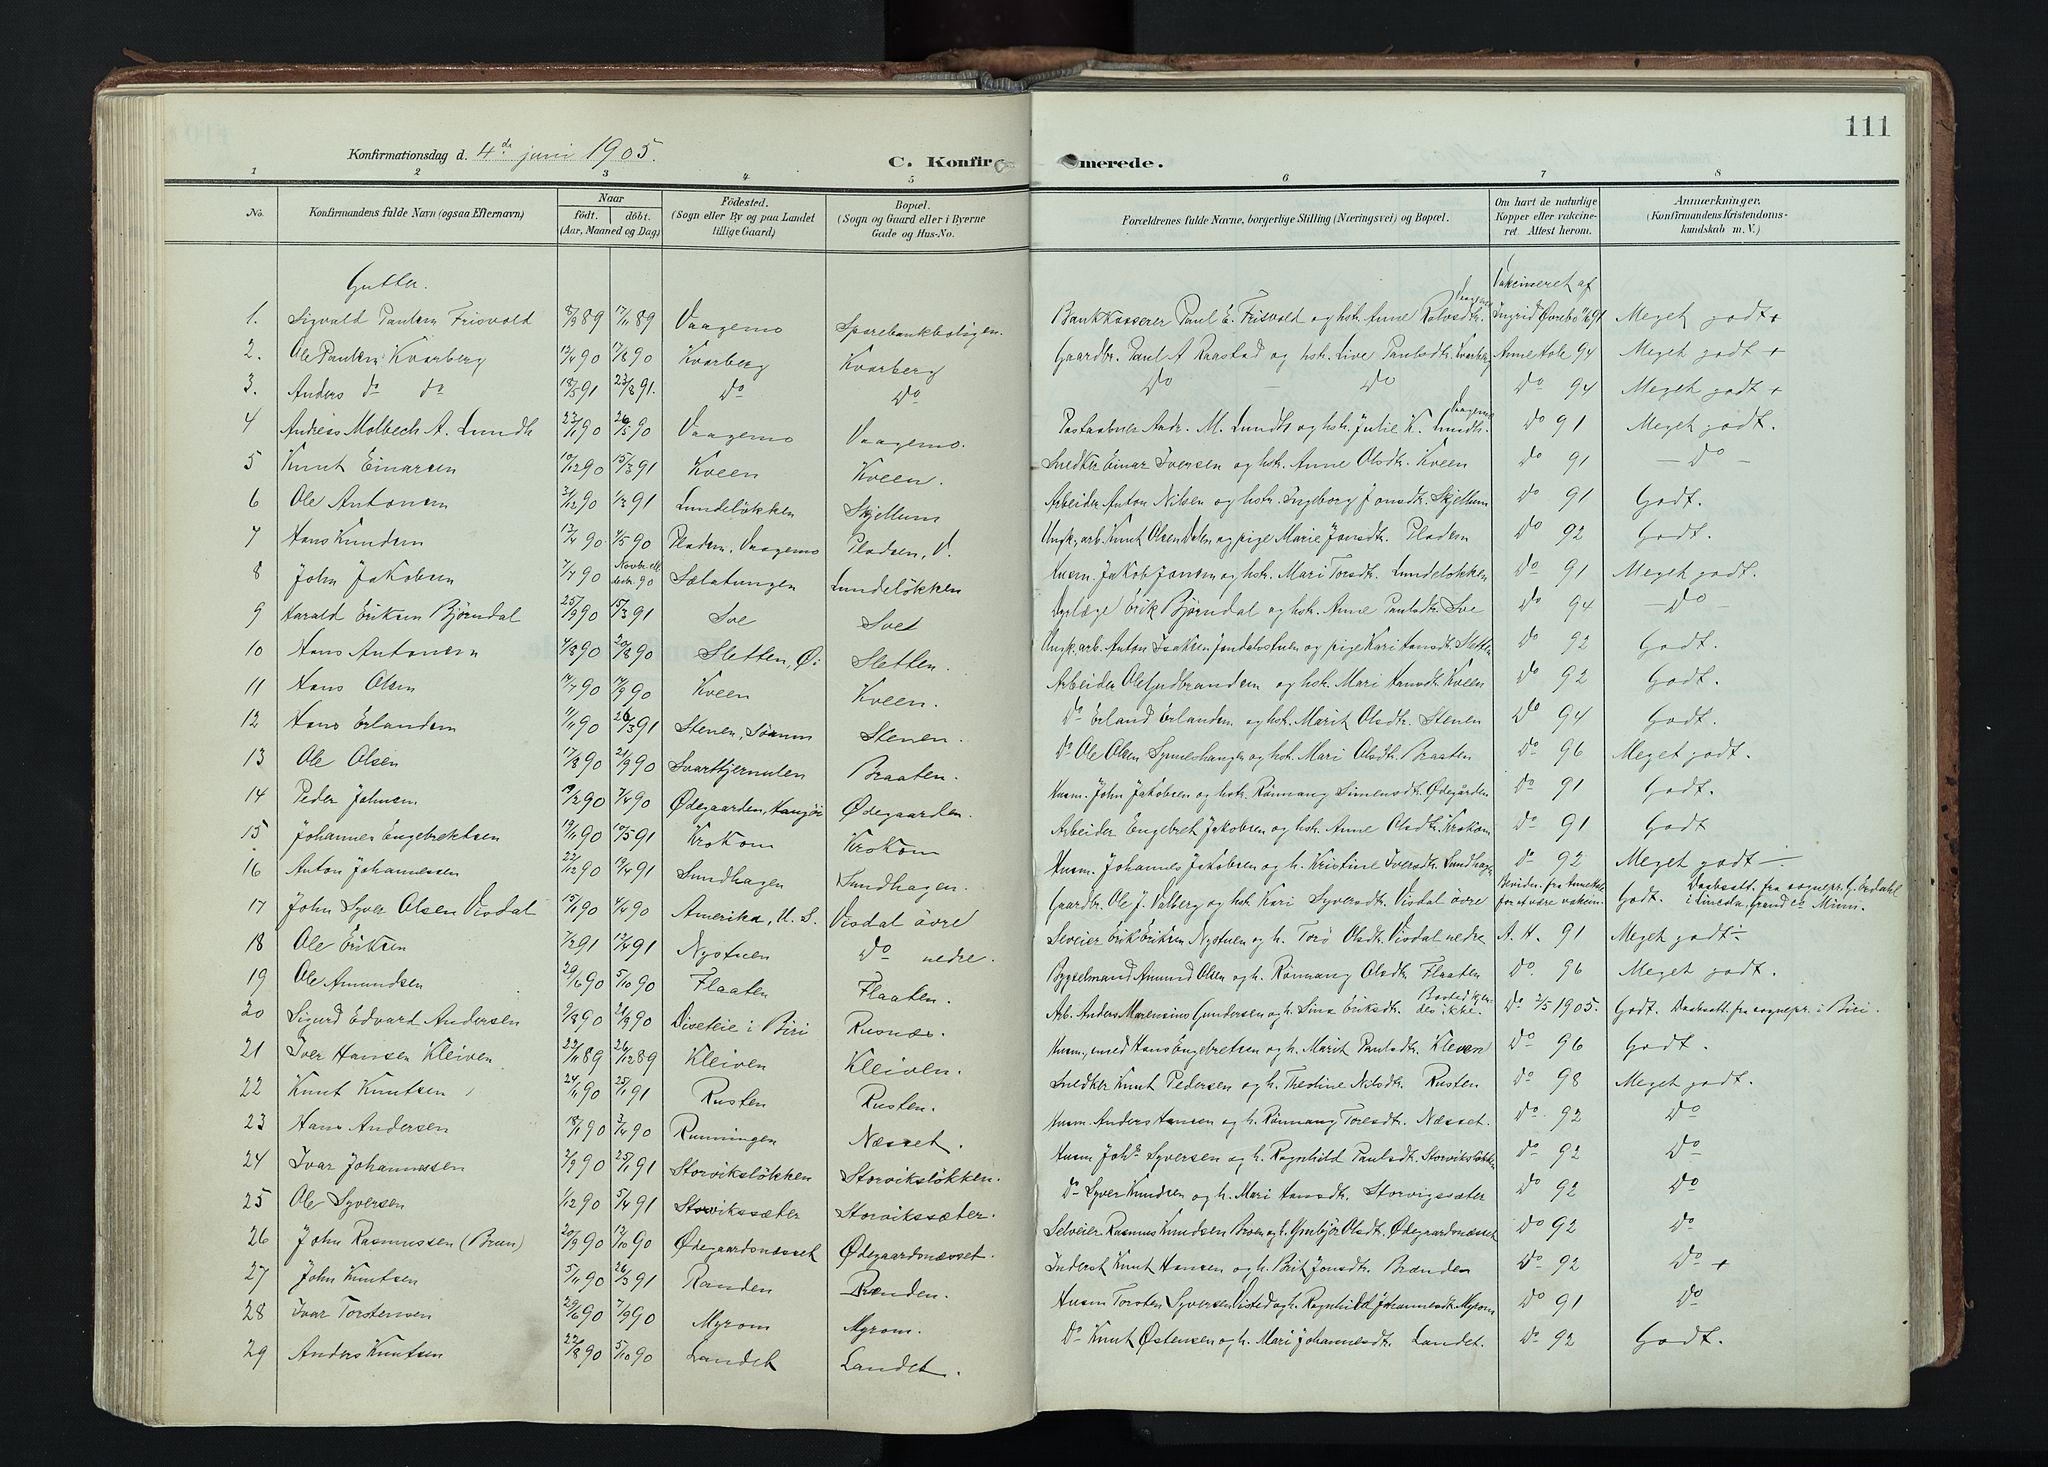 111
Konfirmationsdag d. 4de juni 1905.
C. Konfirmerede.
1 2 3 4 5 6 7 8
No. Konfirmandens fulde Navn (ogsaa Efternavn) Naar født. døbt. (Aar, Maaned og Dag) Fødested. (Sogn eller By og paa Landet tillige Gaard) Bopæl. (Sogn og Gaard eller i Byerne Gade og Hus-No. Forældrenes fulde Navne, borgerlige Stilling (Næringsvei) og Bopæl. Om havt de naturlige Kopper eller vakcineret. Attest herom. Anmærkninger. (Konfirmandens Kristendomskundskab m. V.)
Gutter. Vakcineret af
1. Sigvald Paulsen Frisvold 89 17/11 89 Vaagemo Sparebankboligen. Bankkasserer Paul E. Frisvold og hstr. Anne Rolvsdtr. Vaagemo Ingrid Øvrebø 91 Meget godt +
2. Ole Paulsen Kvarberg 90 90 Kvarberg Kvarberg Gaardbr. Paul A Raastad og hstr. Live Paulsdtr. Kvarberg Anne Hole 94 Meget godt +
3. Anders do do 18/5 91 23/8 91. Do Do Do - Do Do 94 Meget godt +
4 Andreas Molbech A. Lundh 90 26/5 90 Vaagemo Vaagemo. Postaabner Andr. M. Lundh og hstr. Julie K. Lundh. Vaagemo Do 91 Meget godt.
5 Knut Einarsen 10/12 90 15/3 91 Kveen Kveen. Snedker Einar Iversen og hstr. Anne Olsdtr. Kveen Do 91 - Do -
6 Ole Antonsen 90 91 Lundeløkken Skjellum Arbeider Anton Nilsen og hstr. Ingeborg Jonsdtr. Skjellum Do 91 Godt.
7 Hans Knudsen 13/4 90 4/5 90 Pladsen, Vaagemo Pladsen, V. Ungk. arb. Knut Olsen Dalen og pige Marie Jonsdtr. Pladsen Do 92 Godt.
8 John Jakobsen 7/7 90 Novbr. ell. decbr. 90 Sælatungen Lundeløkken Husm. Jakob Jonsen og hstr. Mari Torsdtr. Lundeløkken Do 91 Meget godt.
9 Harald Eriksen Bjørndal 25/9 90 15/3 91 Sve Svee Dyrlæge Erik Bjørndal og hstr. Anne Paulsdtr. Sve Do 94 - Do -
10 Hans Antonsen 4/8 90 20/8 90 Sletten, Ø: Sletten. Ungk. arb. Anton Isaksen Jondalsstuen og pige Kari Hansdtr. Sletten Do 92 Godt.
11 Hans Olsen 14/7 90 14/9 90 Kveen Kveen. Arbeider Ole Gudbrandsen og hstr. Mari Hansdtr. Kveen Do 92 Godt.
12 Hans Erlandsen 11/11 90 26/3 91 Stenen, Sørum Stenen. Do Erland Erlandsen og hstr. Marit Olsdtr. Stenen Do 94 Godt.
13 Ole Olsen 17/8 90 21/9 90 Svarttjernulen Braaten. Do Ole Olsen Synneshangen og hstr. Mari Olsdtr. Braaten Do 96 Meget godt.
14 Peder Johnsen 90 7/4 90 Ødegaarden, Ødegaarden. Husm. John Jakobsen og hstr. Rønnaug Simensdtr. Ødegården Do 91 Godt.
15 Johannes Engebrektsen 19/11 90 10/5 91 Krokom Krokom Arbeider Engebret Jakobsen og hstr. Anne Olsdtr. Krokom Do 91 Godt
16 Anton Johannessen 22/12 90 19/4 91 Sundhagen Sundhagen. Husm. Johannes Jakobsen og h. Kristine Iversdtr. Sundhagen Do 92 Meget godt -
17 John Syver Olsen Visdal 15/1 90 4/4 90 Amerika, U. S. Visdal øvre Gaardbr. Ole J. Valberg og hstr. Kari Syversdtr. Visdal øvre Beviden. fra Anne Hole for at være vakcin. Godt. Daabsatt. fra sognepr.
18 Ole Eriksen 7/2 91 12/4 91 Nystuen Do nedre. Selveier Erik Eriksen Nystuen og h. Torø Olsdtr. Visdal nedre A. H. 91 Meget godt -
19 Ole Amundsen 29/6 90 5/10 90 Flaaten Flaaten. Bygselmand Amund Olsen og h. Rønnaug Olsdtr. Flaaten Do 96 Meget godt.
20 Sigurd Edvard Andersen 9/8 90 21/9 90 i Biri Rusnæs. Arb. Anders Marensius Gundersen og h. Sina Eriksdtr. Bosted kjendes ikke. Do 3/5 1905. Godt. Daabsatt. fra sognepr. i Biri.
21 Iver Hansen Kleiven 22/11 89 26/12 89 Kleiven Kleiven. Husm., smed Hans Engebretsen og h. Marit Paulsdtr. Kleven Do 96 Godt.
22 Knut Knutsen 24/11 90 25/1 91 Rusten Rusten. Snedker Knut Pedersen og h. Thestine Nilsdtr. Rusten Do 98 Meget godt.
23 Hans Andersen 18/1 90 3/4 90 Runningen Næsset. Husm. Anders Hansen og h. Rønnaug Toresdtr. Næsset. Do 92 Do
24 Ivar Johannessen 2/9 90 25/1 91 Storviksløkken Storviksløkken. Husm Johs Syversen og h. Ragnhild Paulsdtr. Storviksløkken Do 92 Do
25 Ole Syversen 1/12 90 5/4 91 Storvikssæter Storvikssæter. Do Syver Knudsen og h. Mari Hansdtr. Storvigssæter Do 92 Do
26 John Rasmussen (Brun) 20/9 90 12/10 90 Ødegaardsnæsset Ødegaardsnæsset. Selveier Rasmus Knudsen og h. Olsdtr. Ødegaardsnæsset Do 92 Do
27 John Knutsen 5/11 90 26/3 91 Randen Randen. Inderst Knut Hansen og h. Brit Jonsdtr. Brænden Do 92 Do +
28 Ivar Torstensen 29/6 90 7/9 90 Myrom Myrom. Husm Torsten Syversen Visted og h. Ragnhild Johannesdtr. Myrom Do 91 Do
29 Anders Knutsen 22/8 90 5/10 90 Landet Landet. Do Knut Østensen og h. Mari Johannesdtr. Landet. Do 92 Godt.